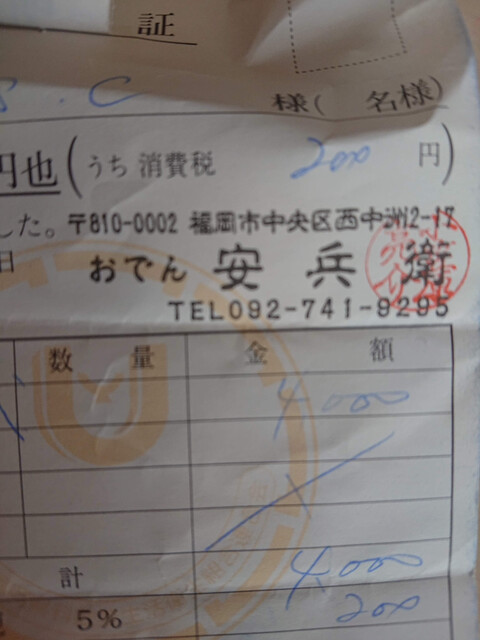 証
S.C 様( 名様)
円也(うち 消費税 200 円)
した。〒810-0002 福岡市中央区西中洲2-17
日 おでん 安兵衛
TEL092-741-9295
数 量 金 額
4000
計 4,000
5% 200